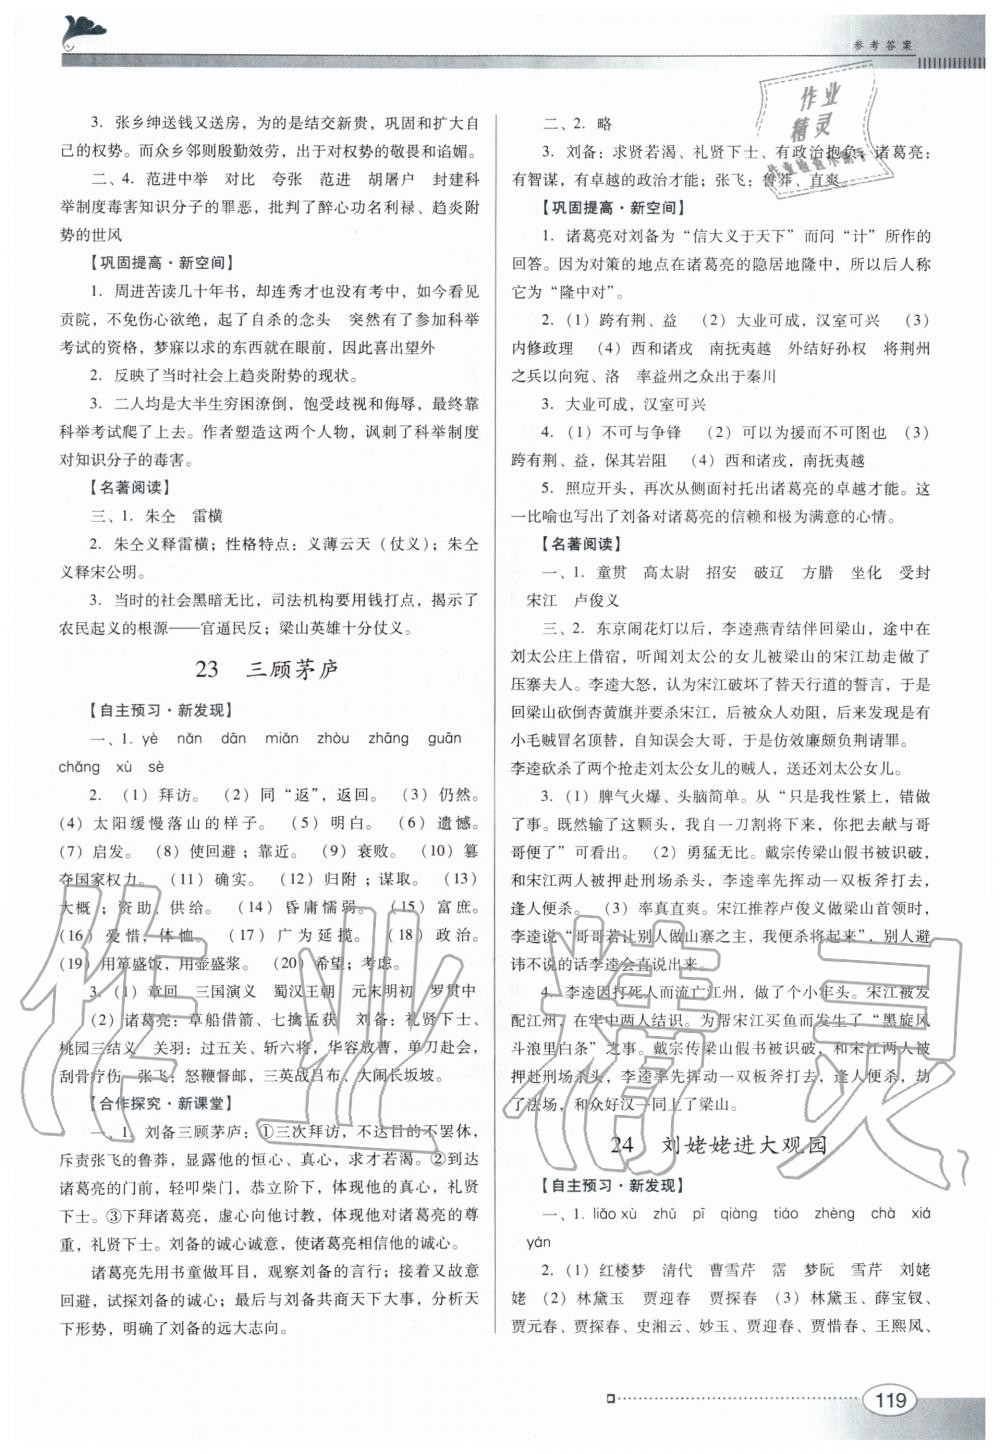 参考答案
3. 张乡绅送钱又送房，为的是结交新贵，巩固和扩大自
己的权势。而众乡邻则殷勤效劳，出于对权势的敬畏和谄媚。
二、4. 范进中举　对比　夸张　范进　胡屠户　封建科
举制度毒害知识分子的罪恶，批判了醉心功名利禄、趋炎附
势的世风
【巩固提高·新空间】
1. 周进苦读几十年书，却连秀才也没有考中，如今看见
贡院，不免伤心欲绝，起了自杀的念头　突然有了参加科举
考试的资格，梦寐以求的东西就在眼前，因此喜出望外
2. 反映了当时社会上趋炎附势的现状。
3. 二人均是大半生穷困潦倒，饱受歧视和侮辱，最终靠
科举考试爬了上去。作者塑造这两个人物，讽刺了科举制度
对知识分子的毒害。
【名著阅读】
三、1. 朱仝　雷横
2. 朱仝义释雷横；性格特点：义薄云天（仗义）；朱仝
义释宋公明。
3. 当时的社会黑暗无比，司法机构要用钱打点，揭示了
农民起义的根源——官逼民反；梁山英雄十分仗义。
23　三顾茅庐
【自主预习·新发现】
一、1. yè　nǎn　dān　miǎn　zhòu　zhāng　guān
chǎng　xù　sè
2. （1）拜访。（2）同“返”，返回。（3）仍然。
（4）太阳缓慢落山的样子。（5）明白。（6）遗憾。
（7）启发。（8）使回避；靠近。（9）衰败。（10）篡
夺国家权力。（11）确实。（12）归附；谋取。（13）
大概；资助、供给。（14）昏庸懦弱。（15）富庶。
（16）爱惜，体恤。（17）广为延揽。（18）政治。
（19）用箪盛饭，用壶盛浆。（20）希望；考虑。
3.（1）章回　三国演义　蜀汉王朝　元末明初　罗贯中
（2）诸葛亮：草船借箭、七擒孟获　刘备：礼贤下士、
桃园三结义　关羽：过五关、斩六将，华容放曹，单刀赴会，
刮骨疗伤　张飞：怒鞭督邮，三英战吕布、大闹长坂坡。
【合作探究·新课堂】
一、1. 刘备三顾茅庐：①三次拜访，不达目的不罢休，
斥责张飞的鲁莽，显露他的恒心、真心，求才若渴。②到达
诸葛亮的门前，轻叩柴门，恭立阶下，体现他的真心，礼贤
下士。③下拜诸葛亮，虚心向他讨教，体现他对诸葛亮的尊
重，礼贤下士。刘备的诚心诚意，使诸葛亮相信他的诚心。
诸葛亮先用书童做耳目，观察刘备的言行；接着又故意
回避，试探刘备的诚心；最后与刘备共商天下大事，分析天
下形势，明确了刘备的远大志向。
二、2. 略
3. 刘备：求贤若渴、礼贤下士、有政治抱负；诸葛亮：
有智谋，有卓越的政治才能；张飞：鲁莽、直爽。
【巩固提高·新空间】
1. 诸葛亮对刘备为“信大义于天下”而问“计”所作的
回答。因为对策的地点在诸葛亮的隐居地隆中，所以后人称
它为“隆中对”。
2.（1）跨有荆、益　（2）大业可成，汉室可兴　（3）
内修政理　（4）西和诸戎　南抚夷越　外结好孙权　将荆州
之兵以向宛、洛　率益州之众出于秦川
3. 大业可成，汉室可兴
4.（1）不可与争锋　（2）可以为援而不可图也　（3）
跨有荆、益，保其岩阻　（4）西和诸戎，南抚夷越
5. 照应开头，再次从侧面衬托出诸葛亮的卓越才能。这
一比喻也写出了刘备对诸葛亮的信赖和极为满意的心情。
【名著阅读】
一、1. 童贯　高太尉　招安　破辽　方腊　坐化　受封
宋江　卢俊义
三、2. 东京闹花灯以后，李逵燕青结伴回梁山，途中在
刘太公庄上借宿，听闻刘太公的女儿被梁山的宋江劫走做了
压寨夫人。李逵大怒，认为宋江破坏了替天行道的誓言，于是
回梁山砍倒杏黄旗并要杀宋江，后被众人劝阻，后来发现是有
小毛贼冒名顶替，自知误会大哥，于是仿效廉颇负荆请罪。
李逵砍杀了两个抢走刘太公女儿的贼人，送还刘太公女儿。
3.（1）脾气火爆、头脑简单。从“只是我性紧上，错做
了事。既然输了这颗头，我自一刀割将下来，你把去献与哥
哥便了”可看出。（2）勇猛无比。戴宗传梁山假书被识破，
和宋江两人被押赴刑场杀头，李逵率先挥动一双板斧打去，
逢人便杀。（3）率真直爽。宋江推荐卢俊义做梁山首领时，
李逵说“哥哥若让别人做山寨之主，我便杀将起来”，别人避
讳不说的话李逵会直说出来。
4. 李逵因打死人而流亡江州，做了个小牢头。宋江被发
配江州，在牢中两人结识。为帮宋江买鱼而发生了“黑旋风
斗浪里白条”之事。戴宗传梁山假书被识破，和宋江两人被
押赴刑场杀头，李逵率先挥动一双板斧打去，逢人便杀，劫
了法场，和众好汉一同上了梁山。
24　刘姥姥进大观园
【自主预习·新发现】
一、1. liǎo xù　zhǔ　pī　qiàng　tiáo　zhèng　chà　xiá
yán
2.（1）红楼梦　清代　曹雪芹　霑　梦阮　雪芹　刘姥
姥（2）林黛玉　贾迎春　贾探春（3）林黛玉、薛宝钗、
贾元春、贾探春、史湘云、妙玉、贾迎春、贾惜春、王熙凤、
119
作业
精灵
作业精灵